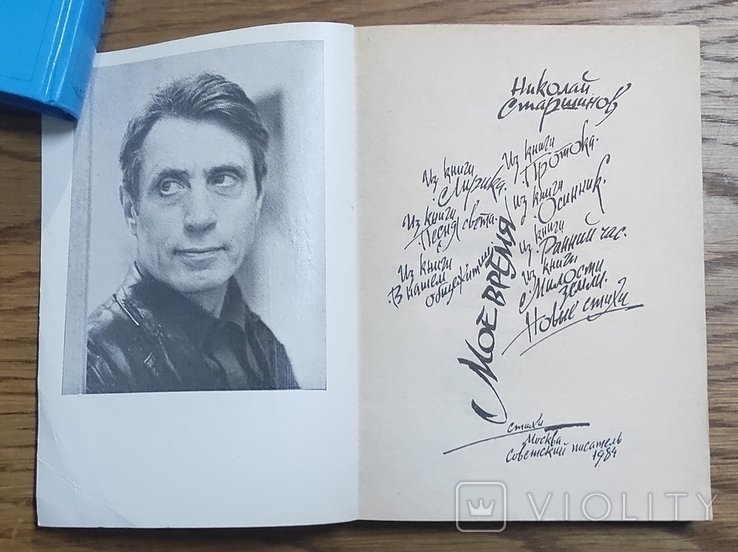 Николай
Старшинов
Из книги
Лирика.
Из книги
Протока.
Из книги
Песня света.
Из книги
Осинник.
Из книги
В нашем
общежитии
Из книги
Ранний час.
Из книги
Милости
земли.
Новые стихи
Моё время
Стихи
Москва
Советский писатель
1984
VIOLITY